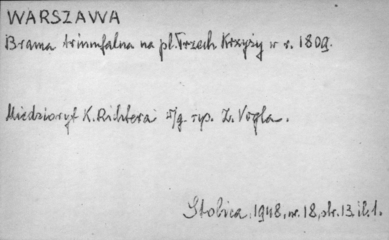 WARSZAWA
Brama triumfalna na pl. Trzech Krzyży w r. 1809.
Miedzioryt K. Richtera w/g rys. Z. Vogla.
Stolica, 1948, nr. 18, str. 13. il. 1.